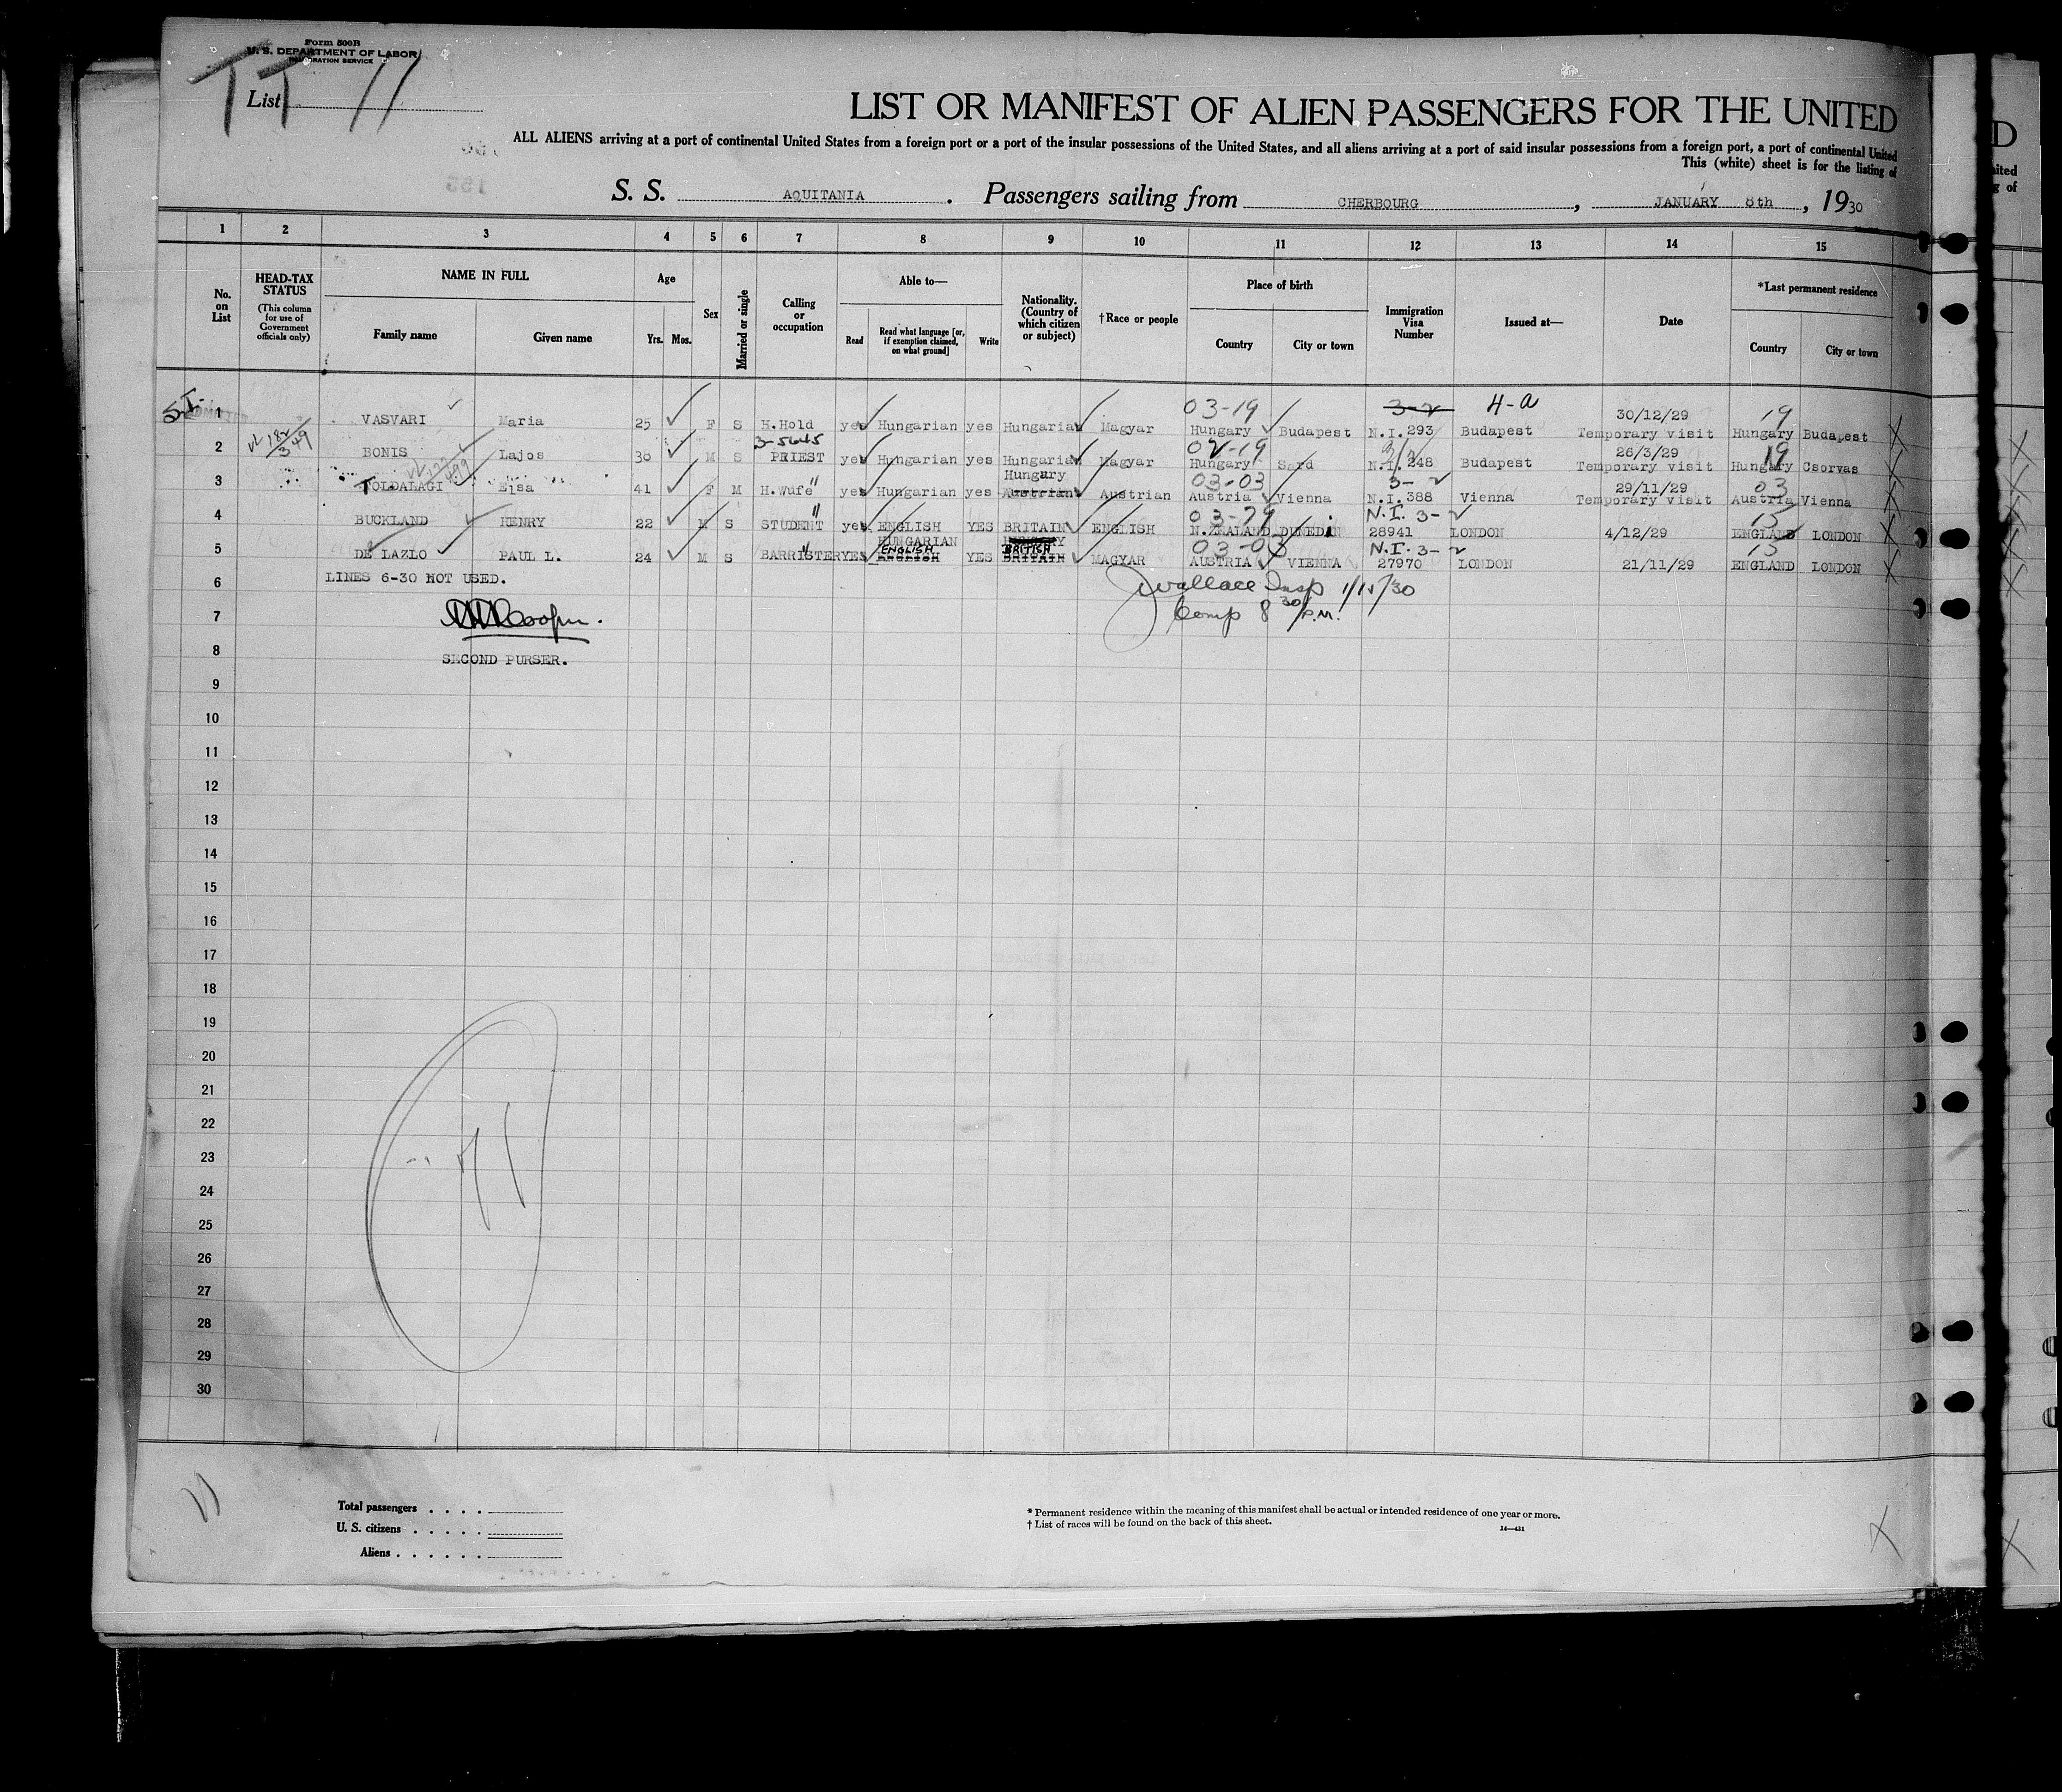 Form 500B
U. S. DEPARTMENT OF LABOR
IMMIGRATION SERVICE
TT 11
List
LIST OR MANIFEST OF ALIEN PASSENGERS FOR THE UNITED
ALL ALIENS arriving at a port of continental United States from a foreign port or a port of the insular possessions of the United States, and all aliens arriving at a port of said insular possessions from a foreign port, a port of continental United
This (white) sheet is for the listing of
S. S. AQUITANIA. Passengers sailing from CHERBOURG, JANUARY 8th, 1930
1 2 3 4 5 6 7 8 9 10 11 12 13 14 15
No. on List
HEAD-TAX STATUS (This column for use of Government officials only)
NAME IN FULL Family name Given name
Age Yrs. Mos.
Sex
Married or single
Calling or occupation
Able to— Read Read what language [or, if exemption claimed, on what ground] Write
Nationality. (Country of which citizen or subject)
†Race or people
Place of birth Country City or town
Immigration Visa Number
Issued at—
Date
*Last permanent residence Country City or town
S.I. 03-19 3-2 4-a 30/12/29 19
1 VASVARI Maria 25 F S H.Hold yes Hungarian yes Hungarian Magyar Hungary Budapest N.I.293 Budapest Temporary visit Hungary Budapest
3-5645 02-19 26/3/29 19
2 BONIS Lajos 38 M S PRIEST yes Hungarian yes Hungarian Magyar Hungary Sard N.I.248 Budapest Temporary visit Hungary Csorvas
Hungary 03-03 3-2 29/11/29 03
3 TOLDALAGI Elsa 41 F M H.Wufe yes Hungarian yes Austrian Austrian Austria Vienna N.I.388 Vienna Temporary visit Austria Vienna
03-29 N.I. 3-2 15
4 BUCKLAND HENRY 22 M S STUDENT yes ENGLISH YES BRITAIN ENGLISH N.ZEALAND DUNEDIN 28941 LONDON 4/12/29 ENGLAND LONDON
HUNGARIAN ENGLISH HUNGARY BRITISH 03-03 N.I. 3-2 15
5 DE LAZLO PAUL L. 24 M S BARRISTER YES ENGLISH YES BRITAIN MAGYAR AUSTRIA VIENNA 27970 LONDON 21/11/29 ENGLAND LONDON
6 LINES 6-30 NOT USED. Wallace Insp 1/15/30
7 Cooper. Comp 8 30/P.M.
8 SECOND PURSER.
9
10
11
12
13
14
15
16
17
18
19
20
21
22
23
24
25
26
27
28
29
30
11
Total passengers
U. S. citizens
Aliens
* Permanent residence within the meaning of this manifest shall be actual or intended residence of one year or more.
† List of races will be found on the back of this sheet.
14—431